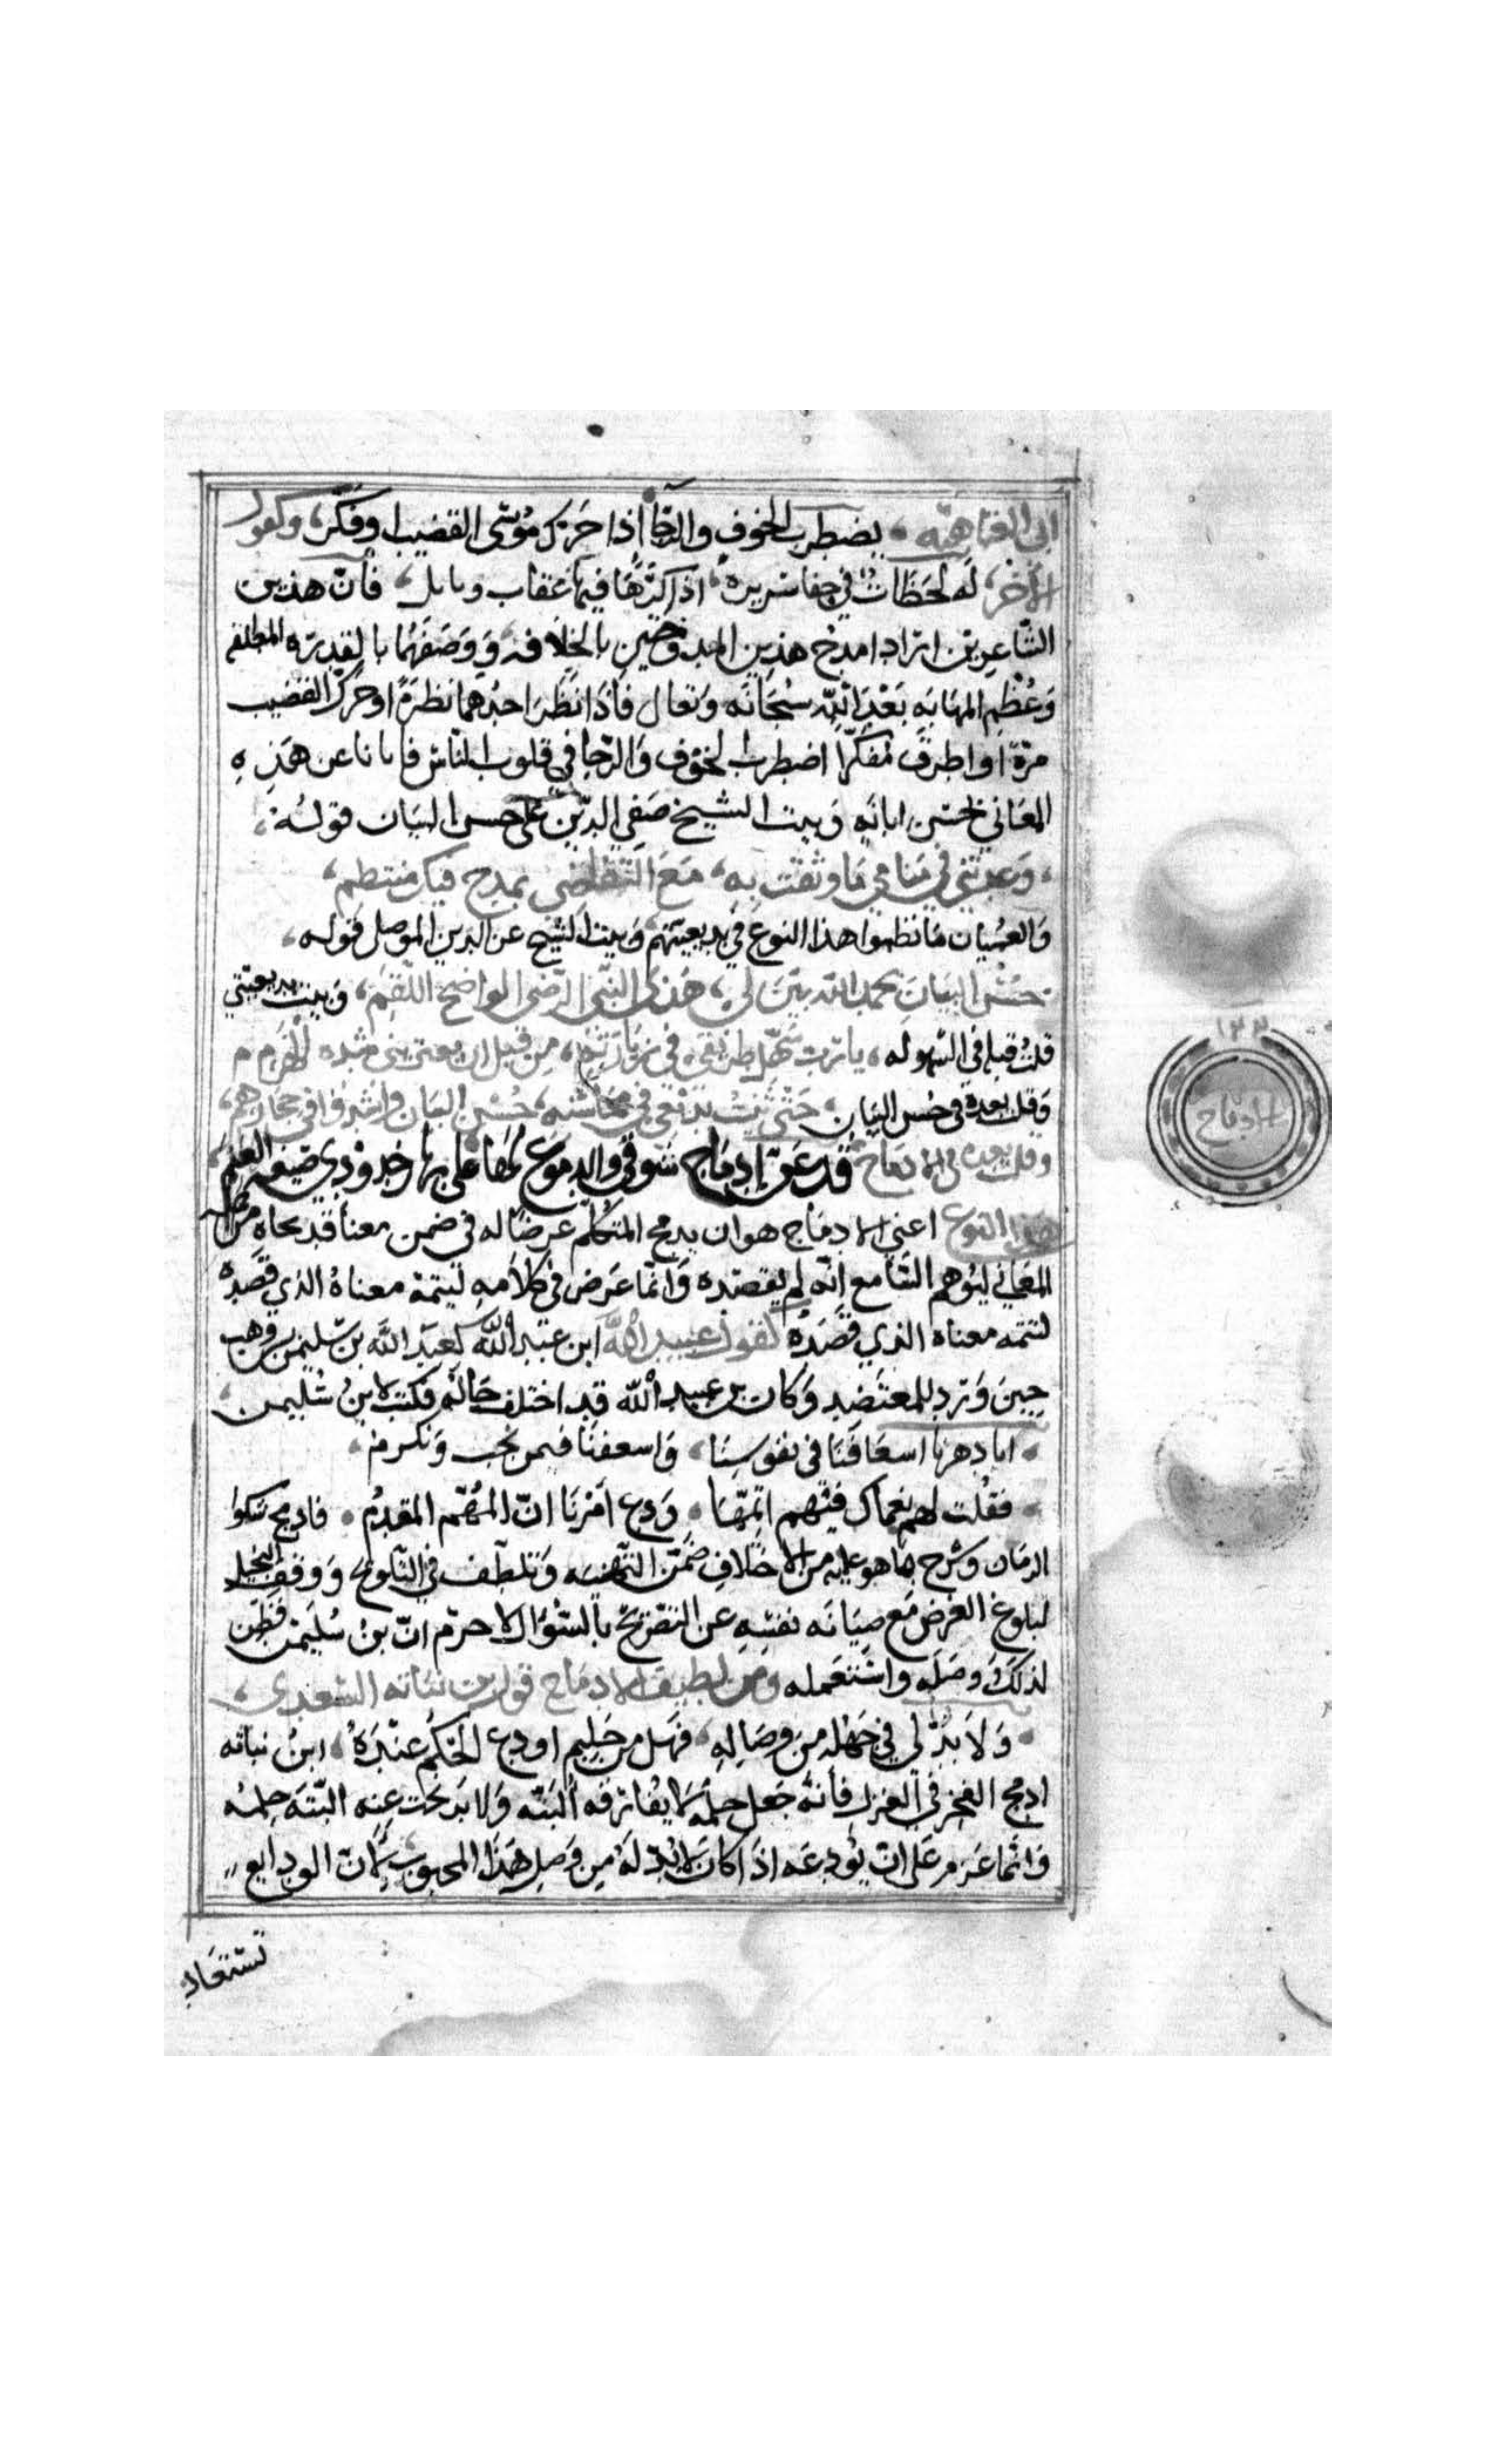 ابى العتاهيه، يضطرب الخوف والرجآ اذا حَرّك مُوسَى القضيب او فكّر، وكقول
الأخر، لَه لحَظَات في حفا سريره، اذا كرّهَا فيهَا عقاب ونايل، فانّ هذين
الشّاعرين ارادا مدح هذين الممدوحَين بالخلافه وَوَصَفَهُمَا بالقدره المطلقه
وَعُظْمِ المهَابَه بَعْدَ اللّه سُبحَانَه وَتعالى فاذَا نَظَرَ احدهما نظرَةً او حَرّك القضيب
مرّةً او اطرق مُفكّرًا اضطرب الخوف وَالرّجا في قلوب النّاس فابانا عن هَذِهِ
المعَاني احسن ابانَه وَبيت الشيخ صَفي الدّين على حسن البيَان قولُه،
، وَعدتني في مَنَامي مَا وثقت به، مَعَ التّقاضى بمدح فيك منتظم،
وَالعميَان مَا نظموا هذا النوعَ في بديعيتهم وَبيت الشيخ عز الدين الموصلى قوله،
حُسْن البيَان بحمد الله بيّن لي، هَذَا النّبي الرّضى الواضح اللّقم، وَبيت بديعيتي
قلتُ قبله في السّهوله، يا ربّ سَهّل طريقى فى زيارته، من قبل ان تعتريني شده الهرم
وَقلت بعده فى حُسن البيَان، حَتّى نبث بديْعي في محَاسنه، حُسْن البيَان وَانشد فى حجازهم،
وقلت بعده فى الادمَاج قد عَزّ إدمَاج شَوقي والدموع لهَا على بهار خدودي صبغه العَنَم،
هذا النوع اعني الادمَاج هو ان يدمج المتكلّم غرضًا له فى ضمن معنا قد نحاه من جمله
المعَاني ليُوهم السّامع انّه لم يقصده وَانّما عَرَض في كلامهِ لتتمة معناهُ الذي قَصَده
لتتمه معناه الذي قَصَدَهُ كقول عبيد اللّه ابن عبد اللّه لعبيد الله بن سّليمن بن وهب
حِينَ وَزر للمعتَضِد وَكان بن عبيد اللّه قد اختلف حَاله فكتب لابنُ سُليمن،
، ابا دهرنا اسعَافَنا في نفوسِنَا، وَاسعفنَا فيمن نحب وَنكرم،
، فقلت لهم نعماك فيهم اتمّهَا، وَدع اَمْرنَا انّ المُهّم المقدمُ، فادمج شكوا
الزمَان وشرح ما هو عليه من الاختلافِ ضمْن التّهنيَه وَتلطّف في التّلويح وَوقف
لبلوغ الغرض مَع صِيَانَه نفسِهِ عن التصريح بالسّؤال لا حرم انّ بنُ سُليمن فَطن
لذلكَ ووَصَله واسْتعمله وَمن لطيف الادمَاج قول بن نباته السّعدي،
، وَلَا بدّ لي في جَهْلِهِ من وصَالِهِ، فهَل من حَليم اودع الحكم عنْدَهُ، ابنُ نباته
ادمج الفخر في الغزل فأنّه جَعل حلمَه لا يفارقه البَتّه وَلا يَرغبت عنه البتّه جملهُ
وَانّما عَزم عَلى انّ يُودعَه اذَا كان لا بُدّ لَه مِن وَصل هَذا المحبوب لأنّ الودايع
تستعَاد
١٢٢
الادمَاج